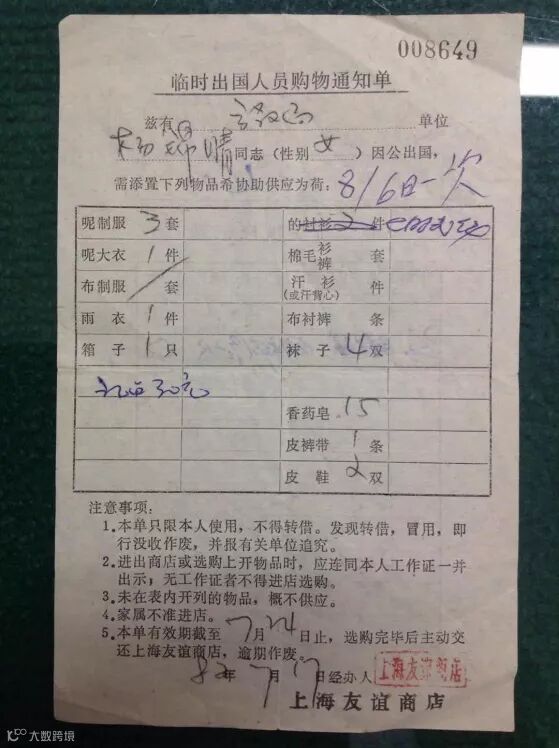 008649
临时出国人员购物通知单
兹有 单位
杨锦晴同志（性别女）因公出国，
需添置下列物品希协助供应为荷：8/6日一次
呢制服 3 套 的衬衫 2 件
呢大衣 1 件 棉毛衫裤 套
布制服 / 套 汗衫（或汗背心） 件
雨衣 1 件 布衬裤 条
箱子 1 只 袜子 4 双
30元
香药皂 15
皮裤带 1 条
皮鞋 2 双
注意事项：
1.本单只限本人使用，不得转借。发现转借，冒用，即
行没收作废，并报有关单位追究。
2.进出商店或选购上开物品时，应连同本人工作证一并
出示；无工作证者不得进店选购。
3.未在表内开列的物品，概不供应。
4.家属不准进店。
5.本单有效期截至7月24日止，选购完毕后主动交
还上海友谊商店，逾期作废。
82年7月17日经办人 上海友谊商店
上海友谊商店
大数跨境